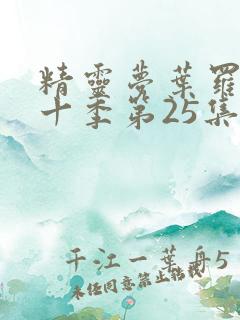 精靈夢葉羅
十季第25集
千江一葉舟5
未經同意禁止轉載